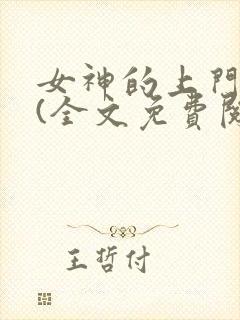 女神的上門
(全文免費閱
王哲付